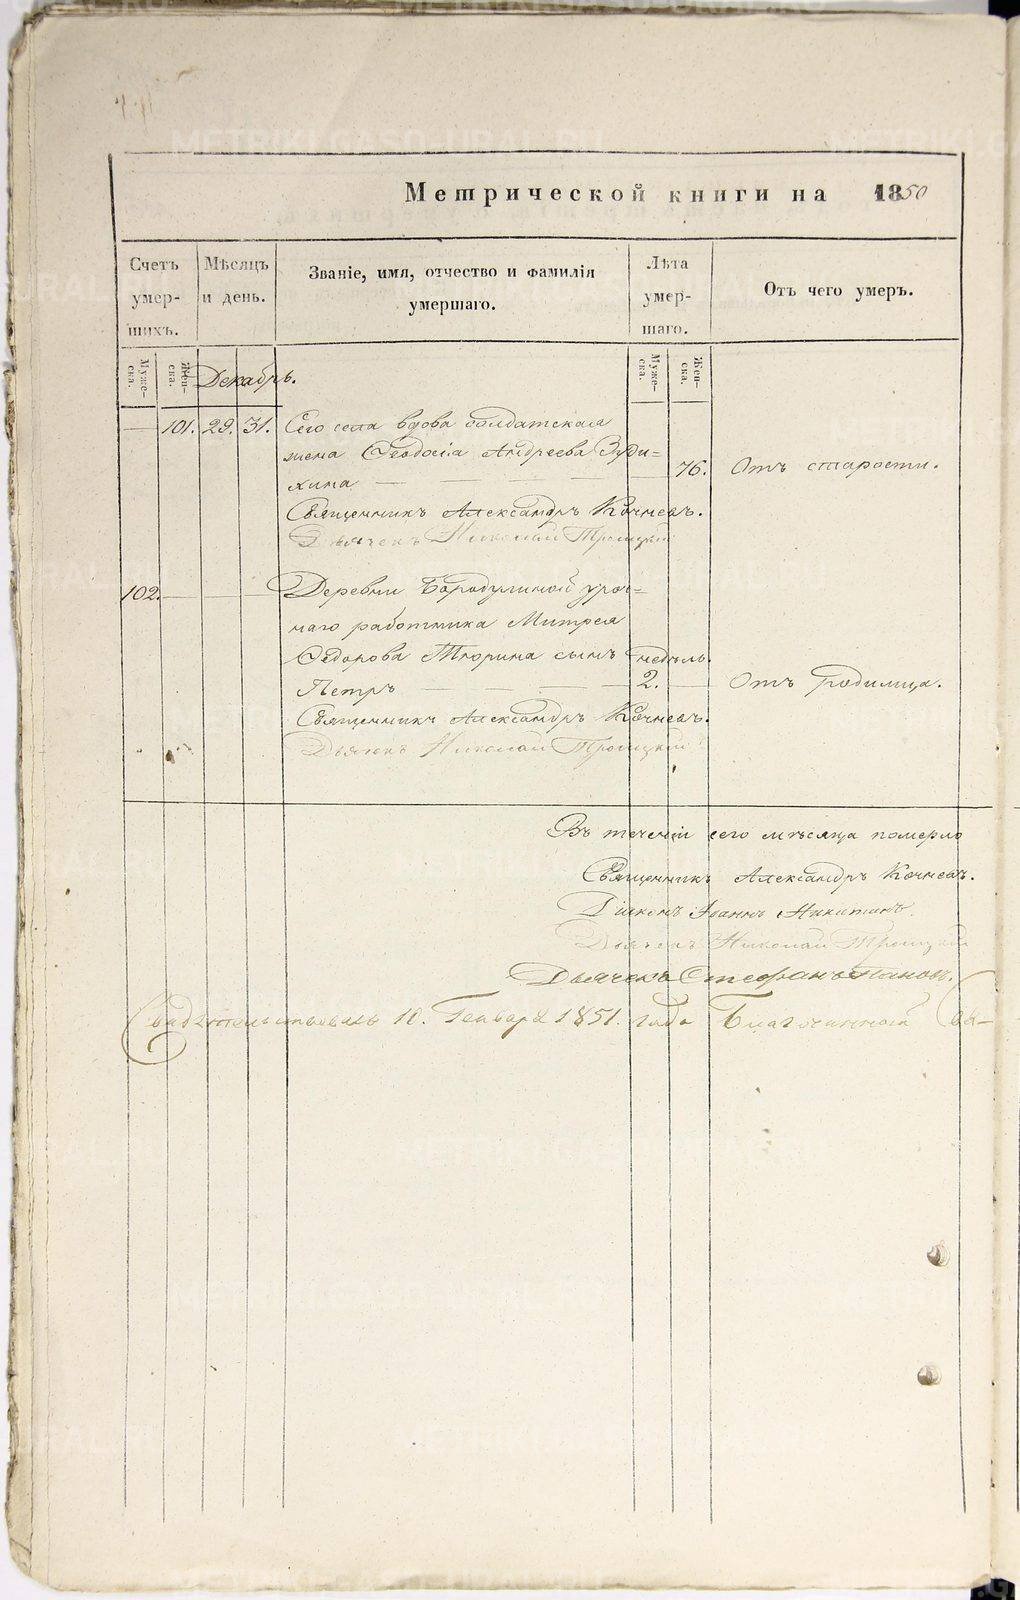 Метрической книги на 1850
Счетъ умер-шихъ.
Мѣсяцъ и день.
Званіе, имя, отчество и фамилія умершаго.
Лѣта умер-шаго.
Отъ чего умеръ.
Муже-ска. Жен-ска.
Муже-ска. Жен-ска.
Декабрь.
101. 29. 31. Сего села вдова солдатская
жена Ѳеодосія Андреева Зуди-
хина 76. Отъ старости.
Священникъ Александръ Кочневъ.
Дьячекъ Николай Троицкій
102. Деревни Бородулиной уроч-
наго работника Митрея
Ѳедорова Тюрина сынъ недѣль.
Петръ 2. Отъ родимца.
Священникъ Александръ Кочневъ.
Дьячекъ Николай Троицкій
Въ теченіи сего мѣсяца померло
Священникъ Александръ Кочневъ.
Діаконъ Іоаннъ Никитинъ.
Дьячекъ Николай Троицкій
Дьячекъ Стефанъ Пановъ.
Свидѣтельствовалъ 10. Генваря 1851. года Благочинный Свя-
METRIKI.GASO-URAL.RU